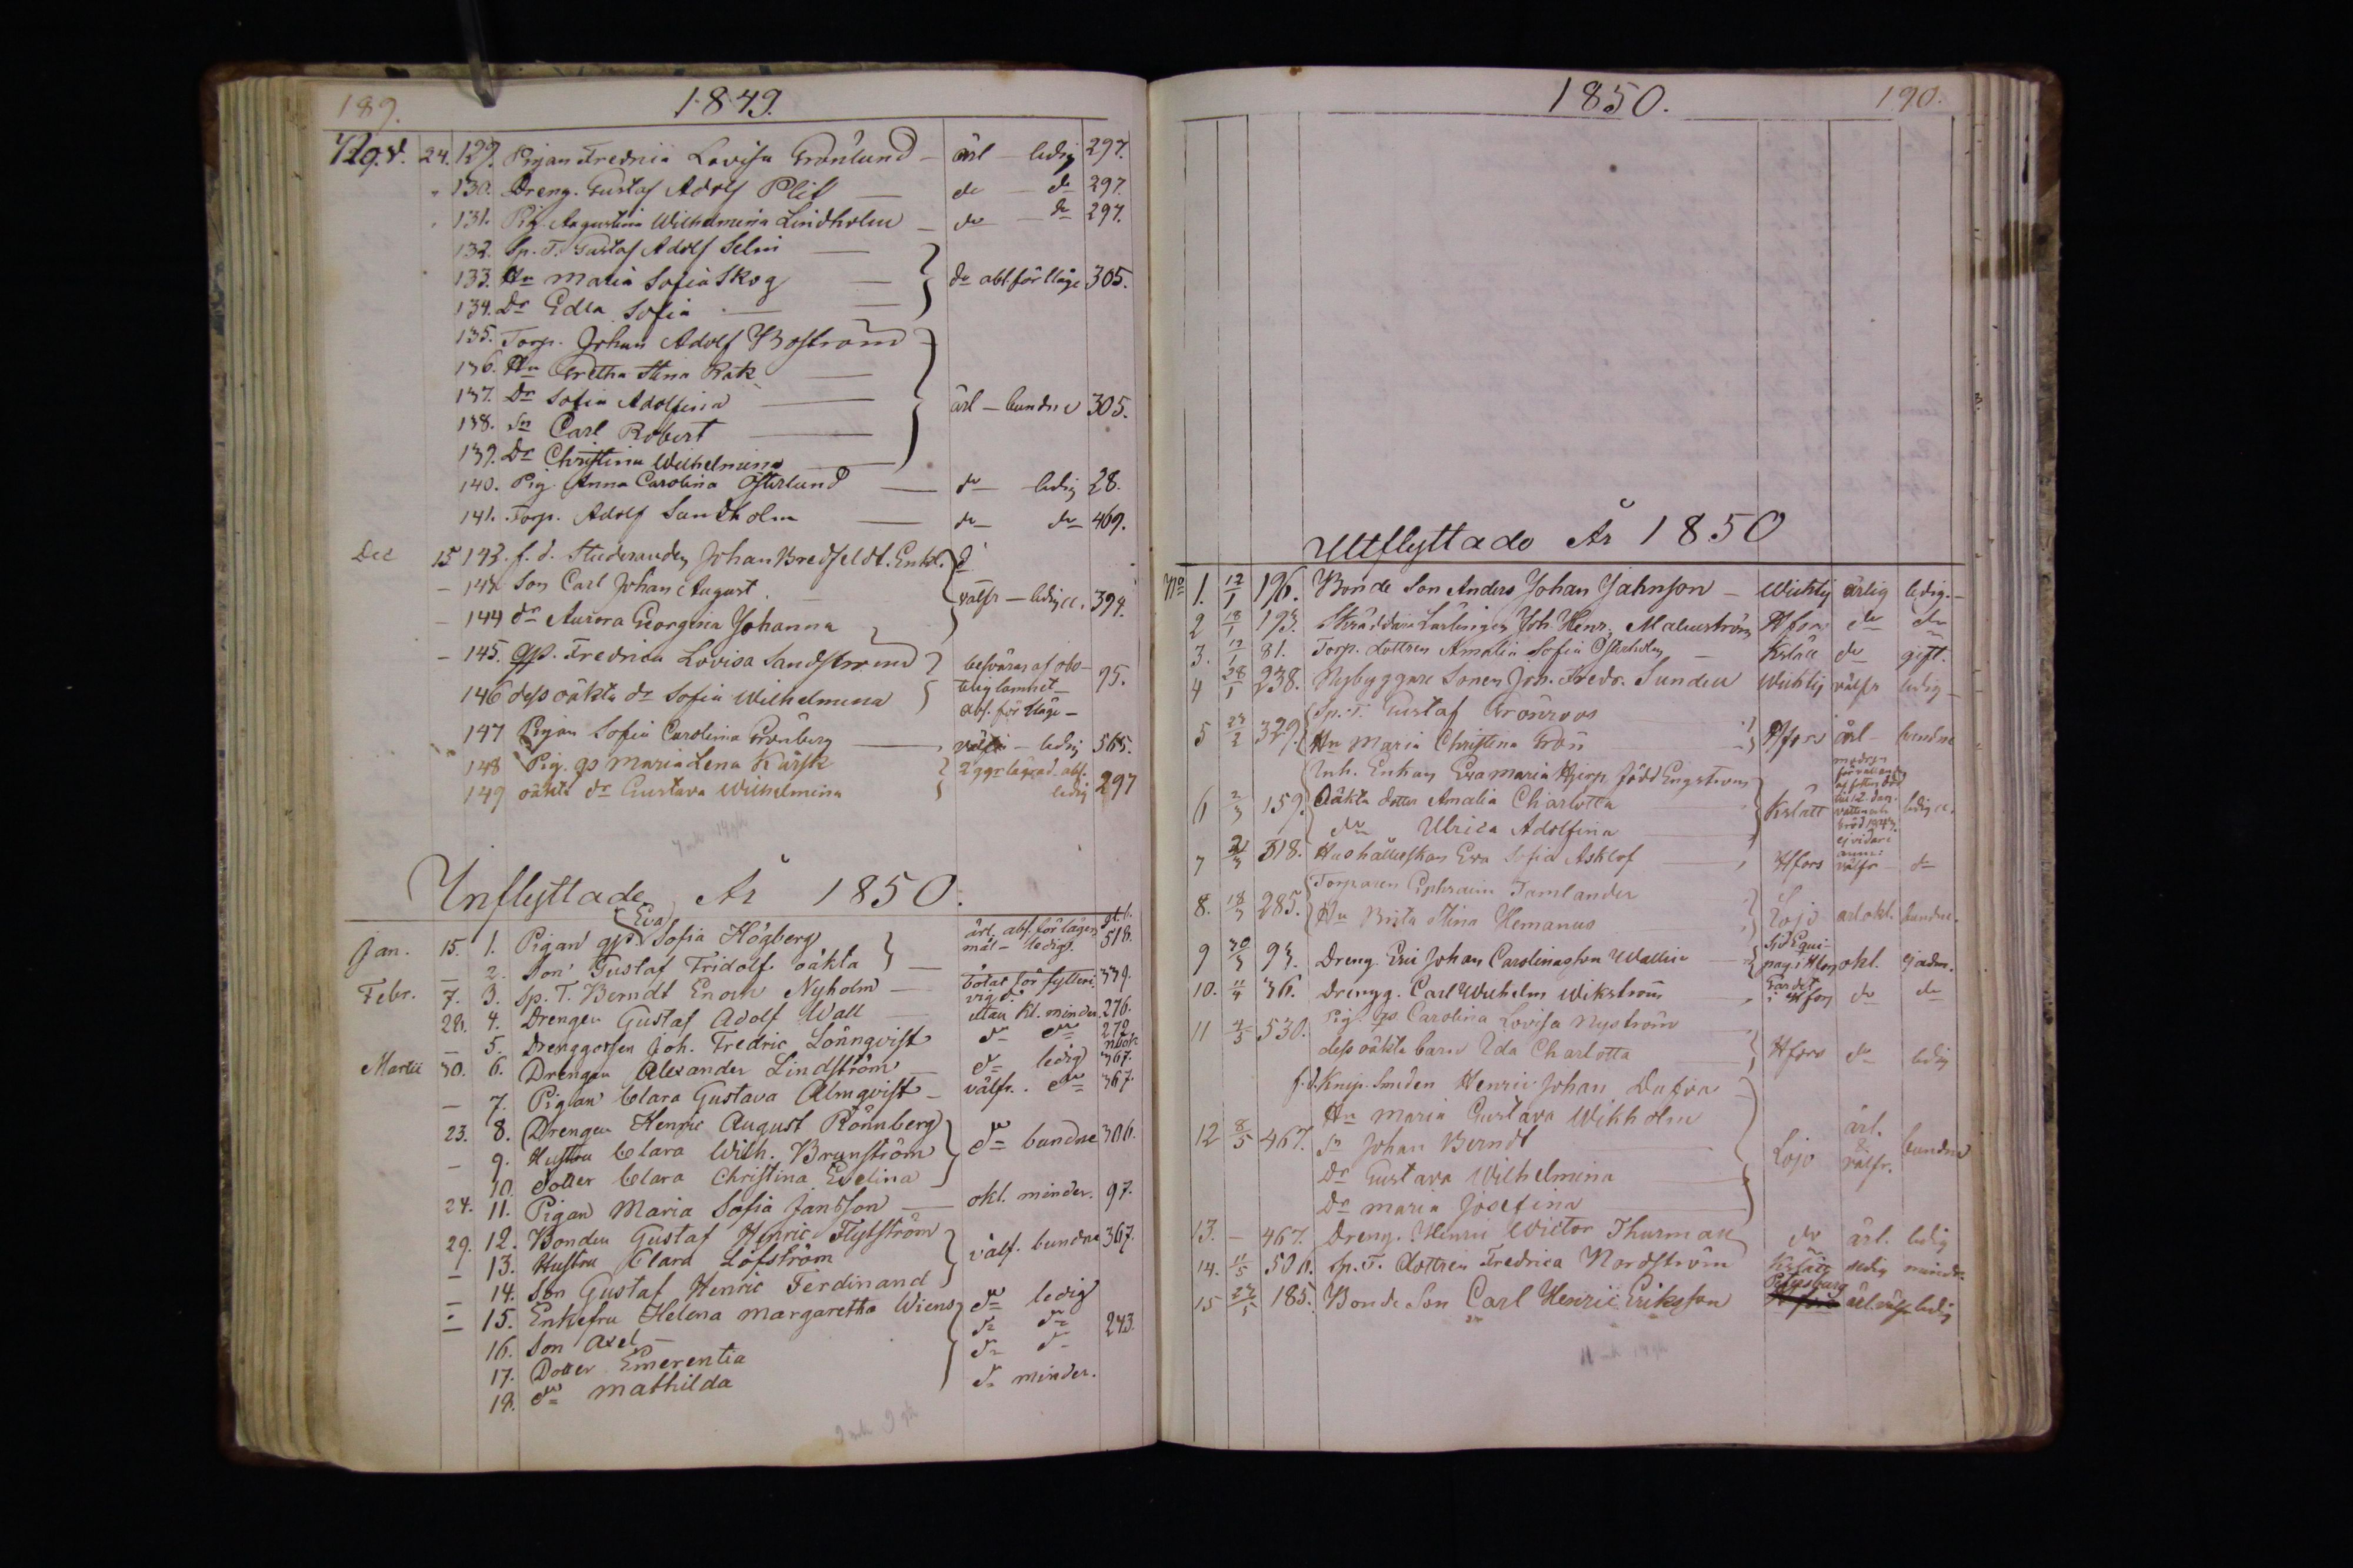 189. 1849.
Nov. 24. 129. Pigan Fredrica Lovisa Grönlund — ärl — ledig 297.
" 130. Dreng. Gustaf Adolf Plit — do — do 297.
" 131. Pig. Augustina Wilhelmina Lindholm — do — do 297.
132. Sp. T. Gustaf Adolf Selin —
133. Hu Maria Sofia Skog — do abs. för 305.
134. Dr Edla Sofia —
135. Torp. Johan Adolf Boström
136. Hu Gretha Stina Rak —
137. Dr Sofia Adolfina — ärl — bundne 305.
138. Sn Carl Robert —
139. Dr Christina Wilhelmina
140. Pig. Anna Carolina Österlund — do — ledig 28.
141. Torp. Adolf Sandholm — do — do 469.
Dec 15 142. f. d. Studeranden Johan Bredfeldt. Enkl.
— 143 Son Carl Johan August — välfr — ledig a. 394.
— 144 dr Aurora Georgina Johanna
— 145. qp. Fredrica Lovisa Sandström besväras af 95.
146 dess oäkta dr Sofia Wilhelmina
abs. för läge —
147 Pigan Sofia Carolina Grönberg — ledig 565.
148 Pig. qp Maria Lena Kärsk 2 ggr lägrad. abs.
149 oäkta dr Gustava Wilhelmina ledig 297
Inflyttade År 1850.
Jan. 15. 1. Pigan qp. Eva Sofia Högberg ärl. abs. för lägers mål — ledig. 518.
— 2. Son Gustaf Fridolf oäkta —
Febr. 7. 3. Sp. T. Berndt Enoch Nyholm — bötat för fylleri. 339.
28. 4. Drengen Gustaf Adolf Wall utan kl. minder. 276.
— 5. Drenggossen Joh. Fredric Lönnqvist do do 272
Martii 30. 6. Drengen Alexander Lindström — do ledig 367.
— 7. Pigan Clara Gustava Almqvist — välfr. do 367.
23. 8. Drengen Henric August Rönnberg do bundne 306.
— 9. Hustru Clara Wilh. Brunström
10. Dotter Clara Christina Evelina
24. 11. Pigan Maria Sofia Jansson — okl. minder. 97.
29. 12. Bonden Gustaf Henric Flytström välf. bundne 367.
— 13. Hustru Clara Löfström
— 14. Son Gustaf Henric Ferdinand
— 15. Enkefru Helena Margaretha Wiens do ledig
16. Son Axel — do do 243.
17. Dotter Emerentia do do
18. do Mathilda do minder.
1850. 190.
Utflyttade År 1850
No 1. 12/1 196. Bonde Son Anders Johan Jahnson — Wichtis ärlig ledig. —
2 12/1 193. Skräddare Lärlingen Joh. Henr. Malmström Hfors do do
3. 12/1 81. Torp. dottren Amalia Sofia Österholm — Kslätt do gift.
4 28/1 238. Nybyggare Sonen Joh. Fredr. Sundell Wichtis välfr ledig —
5 23/2 329. Sp. T. Gustaf Grönroos
Hu Maria Christina Grön Hfors ärl — bundne
6 2/3 159. Inh. Enkan Eva Maria Hjerp född Engström
Oäkta dotter Amalia Charlotta Kslätt ledig a.
do Ulrica Adolfina
7 21/3 318. Hushållerskan Eva Sofia Asklöf — Hfors välfr do
8. 18/3 285. Torparen Ephraim Tamlander
Hu Brita Stina Hemanus Lojo ärl okl. bundne.
9 30/3 93. Dreng. Eric Johan Carolinason Wallin Sjö Equipag. i Hfors okl. ej adm.
10. 11/4 36. Drengg. Carl Wilhelm Wikström Gardet i Hfors do do
11 4/5 530. Pig. qp Carolina Lovisa Nyström
dess oäkta barn Ida Charlotta Hfors do ledig
f. d. Knip. Smeden Henric Johan Dufva
Hu Maria Gustava Wikholm
12 8/5 467. Sn Johan Berndt Lojo ärl. & välfr. bundne
Dr Gustava Wilhelmina
Dr Maria Josefina
13. — 467. Dreng. Henric Wictor Thurman do ärl. ledig
14. 11/5 501. Sp. T. dottren Fredrica Nordström Kslätt sedig minder.
15 27/5 185. Bonde Son Carl Henric Erikson Petersburg ärl. välfr ledig